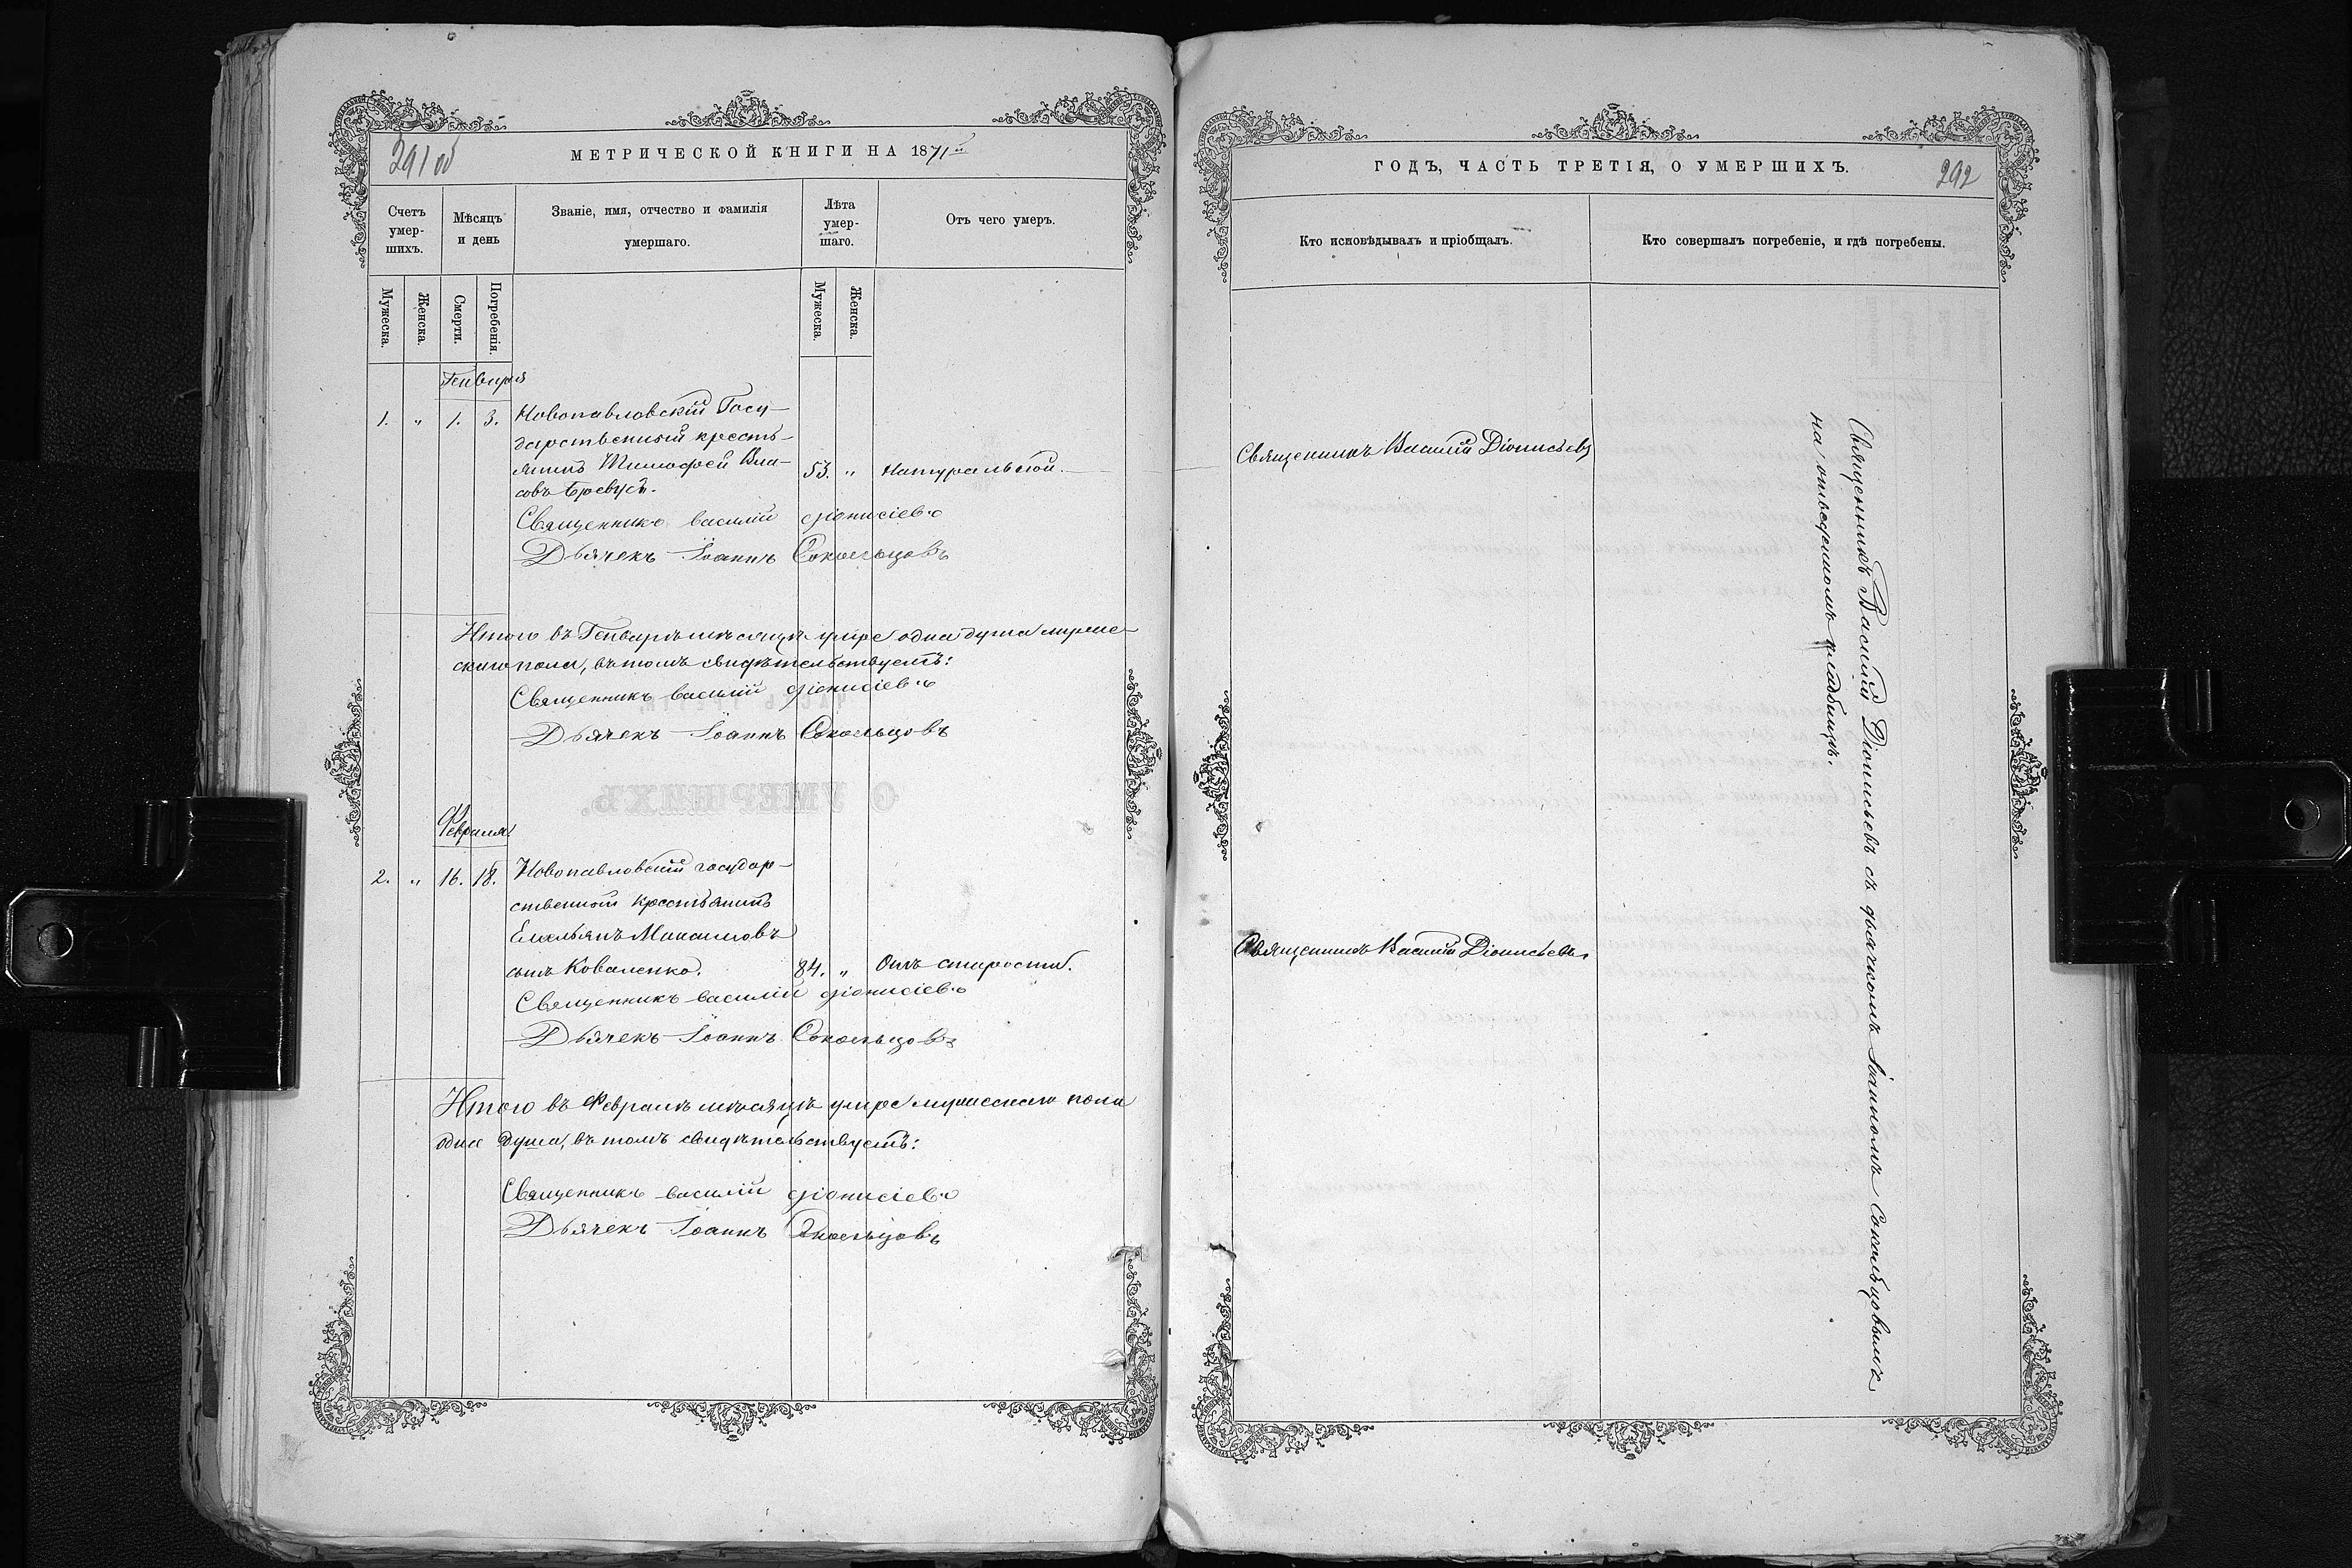 291 об
МЕТРИЧЕСКОЙ КНИГИ НА 1871й
Счетъ умер-шихъ.
Мѣсяцъ и день
Званіе, имя, отчество и фамилія умершаго.
Лѣта умер-шаго.
Отъ чего умеръ.
Мужеска.
Женска.
Смерти.
Погребенія.
Мужеска.
Женска.
Генваря
1. „ 1. 3. Новопавловскій Госу-
дарственный кресть-
янинъ Тимофей Вла- 53. „ Натуральной.
совъ
Священникъ Василій Діонисіевъ
Дьячекъ Іоаннъ Сокольцовъ
Итого въ Генварѣ мѣсяцѣ умре одна душа муже-
скаго пола, въ томъ свидѣтельствуетъ:
Священникъ Василій Діонисіевъ
Дьячекъ Іоаннъ Сокольцовъ
Февраля
2. „ 16. 18. Новопавловскій государ-
ственный крестьянинъ
Емельянъ Максимовъ
сынъ Коваленко. 84. „ Отъ старости.
Священникъ Василій Діонисіевъ
Дьячекъ Іоаннъ Сокольцовъ
Итого въ Февралѣ мѣсяцѣ умре мужескаго пола
одна душа, въ томъ свидѣтельствуетъ:
Священникъ Василій Діонисіевъ
Дьячекъ Іоаннъ Сокольцовъ
ГОДЪ, ЧАСТЬ ТРЕТІЯ, О УМЕРШИХЪ.
292
Кто исповѣдывалъ и пріобщалъ.
Кто совершалъ погребеніе, и гдѣ погребены.
Священникъ Василій Діонисьевъ
Священникъ Василій Діонисьевъ
Священникъ Василій Діонисьевъ съ дьячкомъ Іоанномъ Сокольцовымъ
на отведенномъ кладбищѣ.